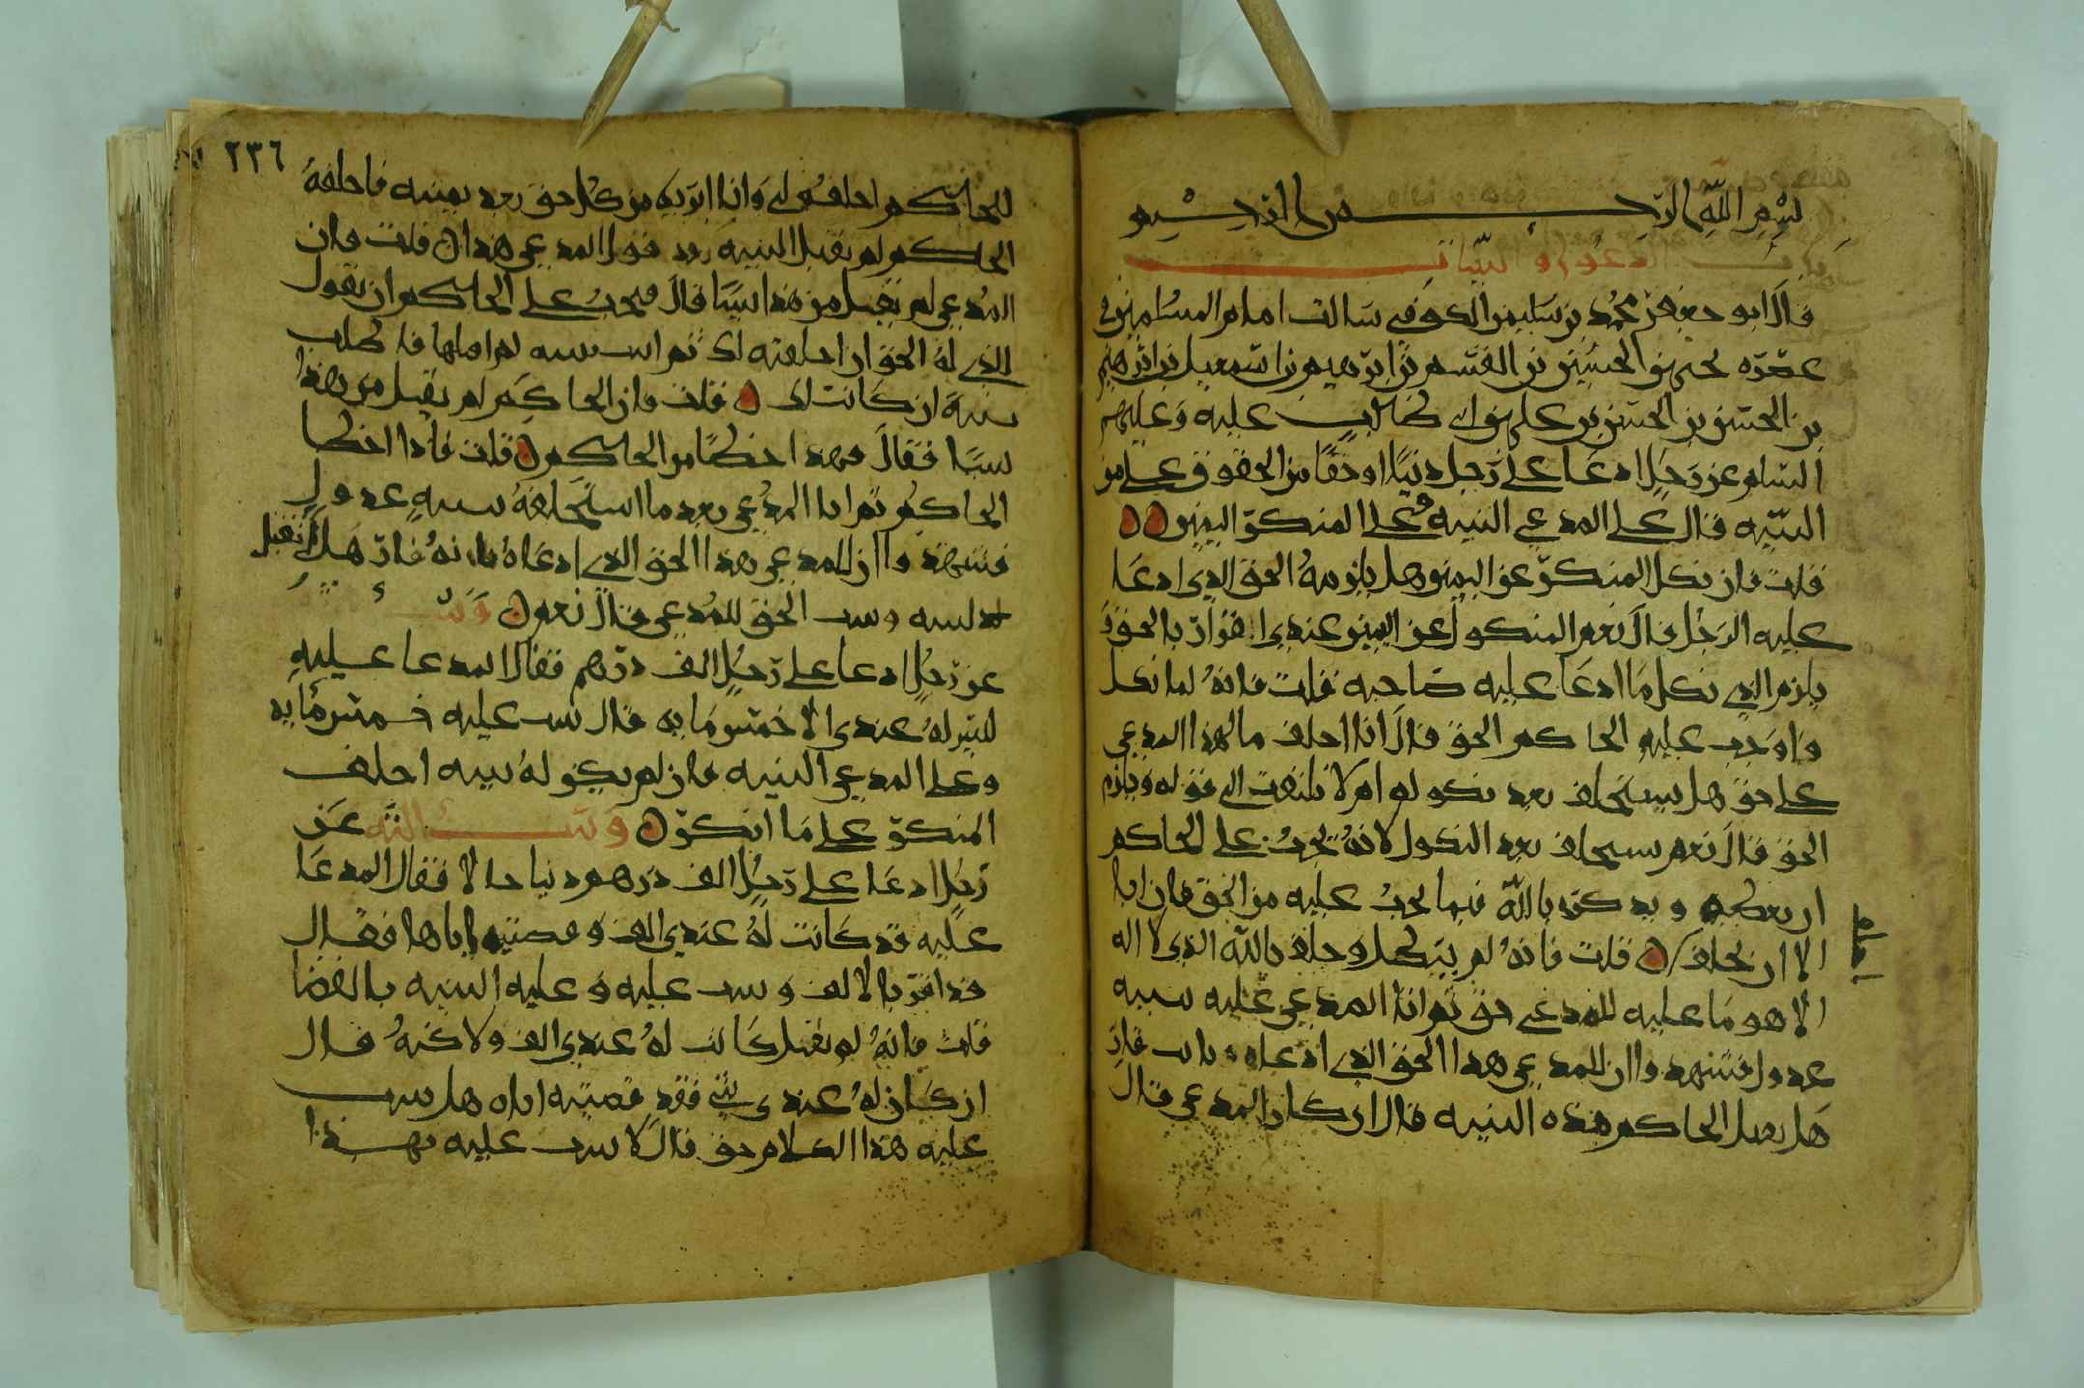 بسم الله الرحمن الرحيم
كتاب الدعوى والبينات
قال ابو جعفر محمد بن سليمن الكوفي سالت امام المسلمين في
عصره يحيى بن الحسين بن القسم بن ابرهيم بن اسمعيل بن ابرهيم
بن الحسن بن الحسن بن علي بن ابي طالب عليه وعليهم
السلام عن رجل ادعا على رجل دينا او حقا من الحقوق على من
البينه قال على المدعي البينه وعلى المنكر اليمين
قلت فان نكل المنكر عن اليمين هل يلزمه الحق الذي ادعا
عليه الرجل قال نعم النكول عن اليمين عندي اقرار بالحق و
يلزم الذي نكل ما ادعا عليه صاحبه قلت فانه لما نكل
واوجب عليه الحاكم الحق قال انا احلف ما لهذا المدعي
علي حق هل يستحلف بعد نكوله ام لا يلتفت الى قوله ويلزم
الحق قال نعم يستحلف بعد النكول لانه يجب على الحاكم
ان يعظه ويذكره بالله فيما يجب عليه من الحق فان ابا
الا ان يحلف قلت فانه لم ينكل وحلف بالله الذي لا اله
الا هو ما عليه للمدعي حق ثم اتا المدعي عليه ببينه
عدول فشهدوا ان للمدعي هذا الحق الذي ادعاه
هل يقبل الحاكم هذه البينه قال ان كان المدعي قال
٢٣٦
للحاكم احلفه لي وانا ابريه من كل حق بعد يمينه فاحلفه
الحاكم لم يقبل البينه بعد قول المدعي هذا قلت فان
المدعي لم يقل من هذا شيا قال فيجب على الحاكم ان يقول
للذي له الحق ان احلفته لك ثم اتيت ببينه لم اقبلها فاطلب
بينة ان كانت لك قلت فان الحاكم لم يقل من هذا
شيا فقال فهذا خطا من الحاكم قلت فاذا اخطا
الحاكم ثم اتا المدعي بعد ما استحلفه ببينه عدول
فشهدوا ان للمدعي هذا الحق الذي ادعاه
البينه ويثبت الحق للمدعي قال نعم
عن رجل ادعا على رجل الف درهم فقال المدعا عليه
ليس له عندي الا خمس مايه قال يثبت عليه خمس مايه
وعلى المدعي البينه فان لم يكن له بينه احلف
المنكر على ما انكر وسالته عن
رجل ادعا على رجل الف درهم دينا حالا فقال المدعا
عليه قد كانت له عندي الف وقضيته اياها فقال
قد اقر بالالف ويثبت عليه وعليه البينه بالقضا
قلت فانه لم يقل كانت له عندي الف ولاكنه قال
ان كان له عندي شي فقد قضيته اياه هل يثبت
عليه هذا الكلام حق قال لا يثبت عليه بهذا